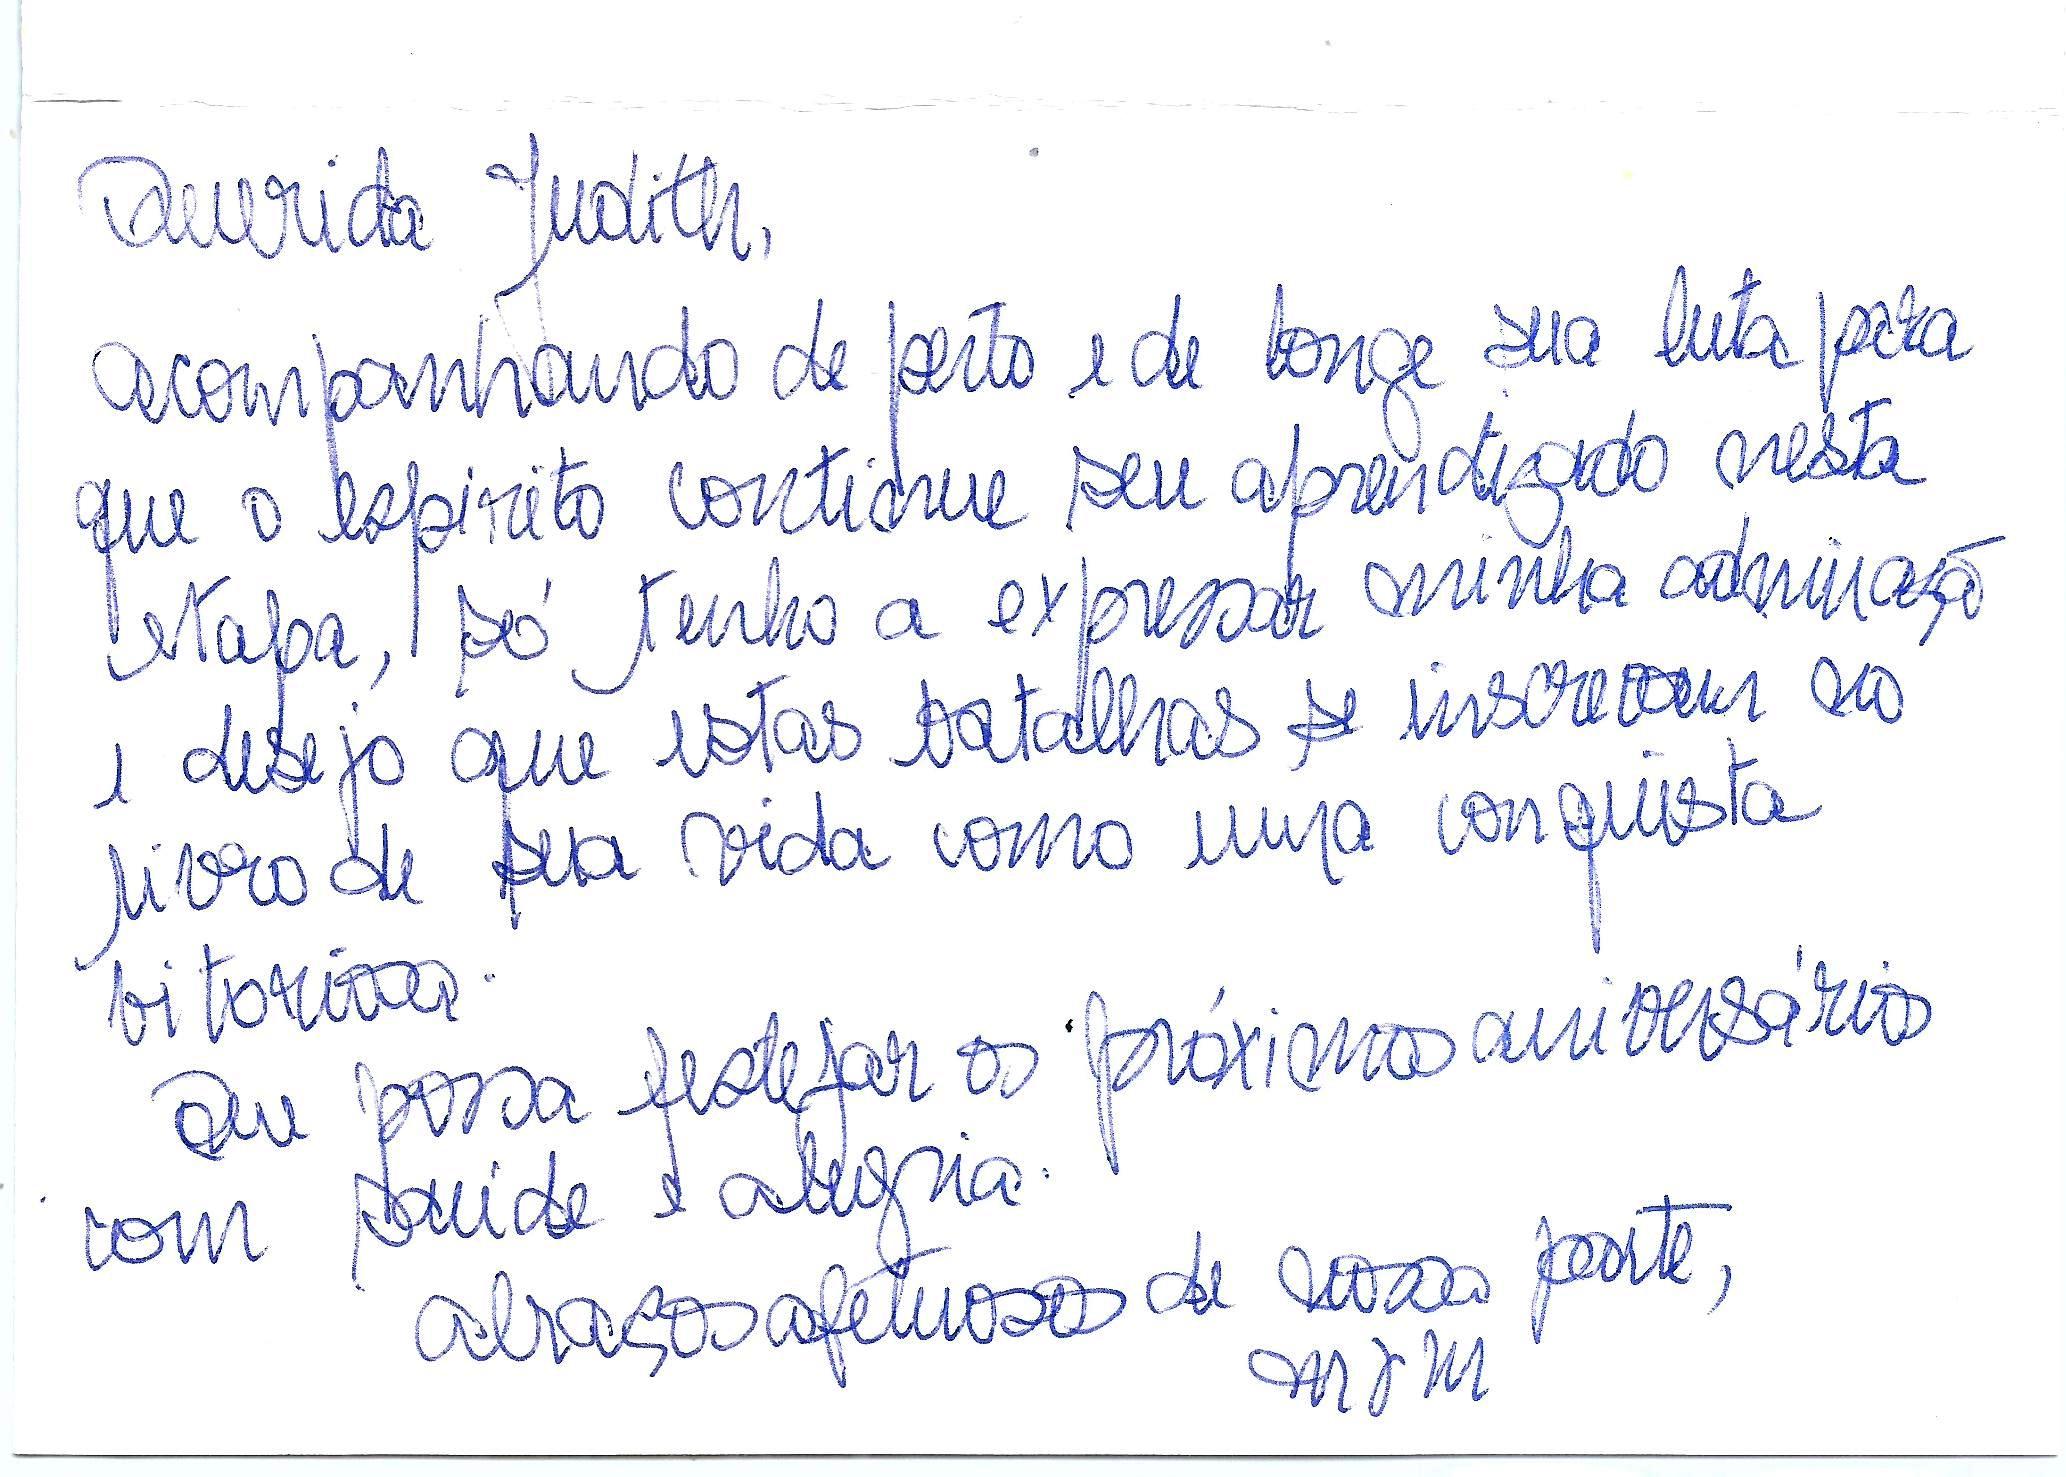 Querida Judith,
acompanhando de perto e de longe sua luta para
que o espirito continue seu aprendizado nesta
etapa, só tenho a expressar minha admiração
e desejo que estas batalhas se inscrevam no
livro de sua vida como uma conquista
vitoriosa.
Que possa festejar os próximos aniversários
com saúde e alegria.
abraços afetuosos de nossa parte,